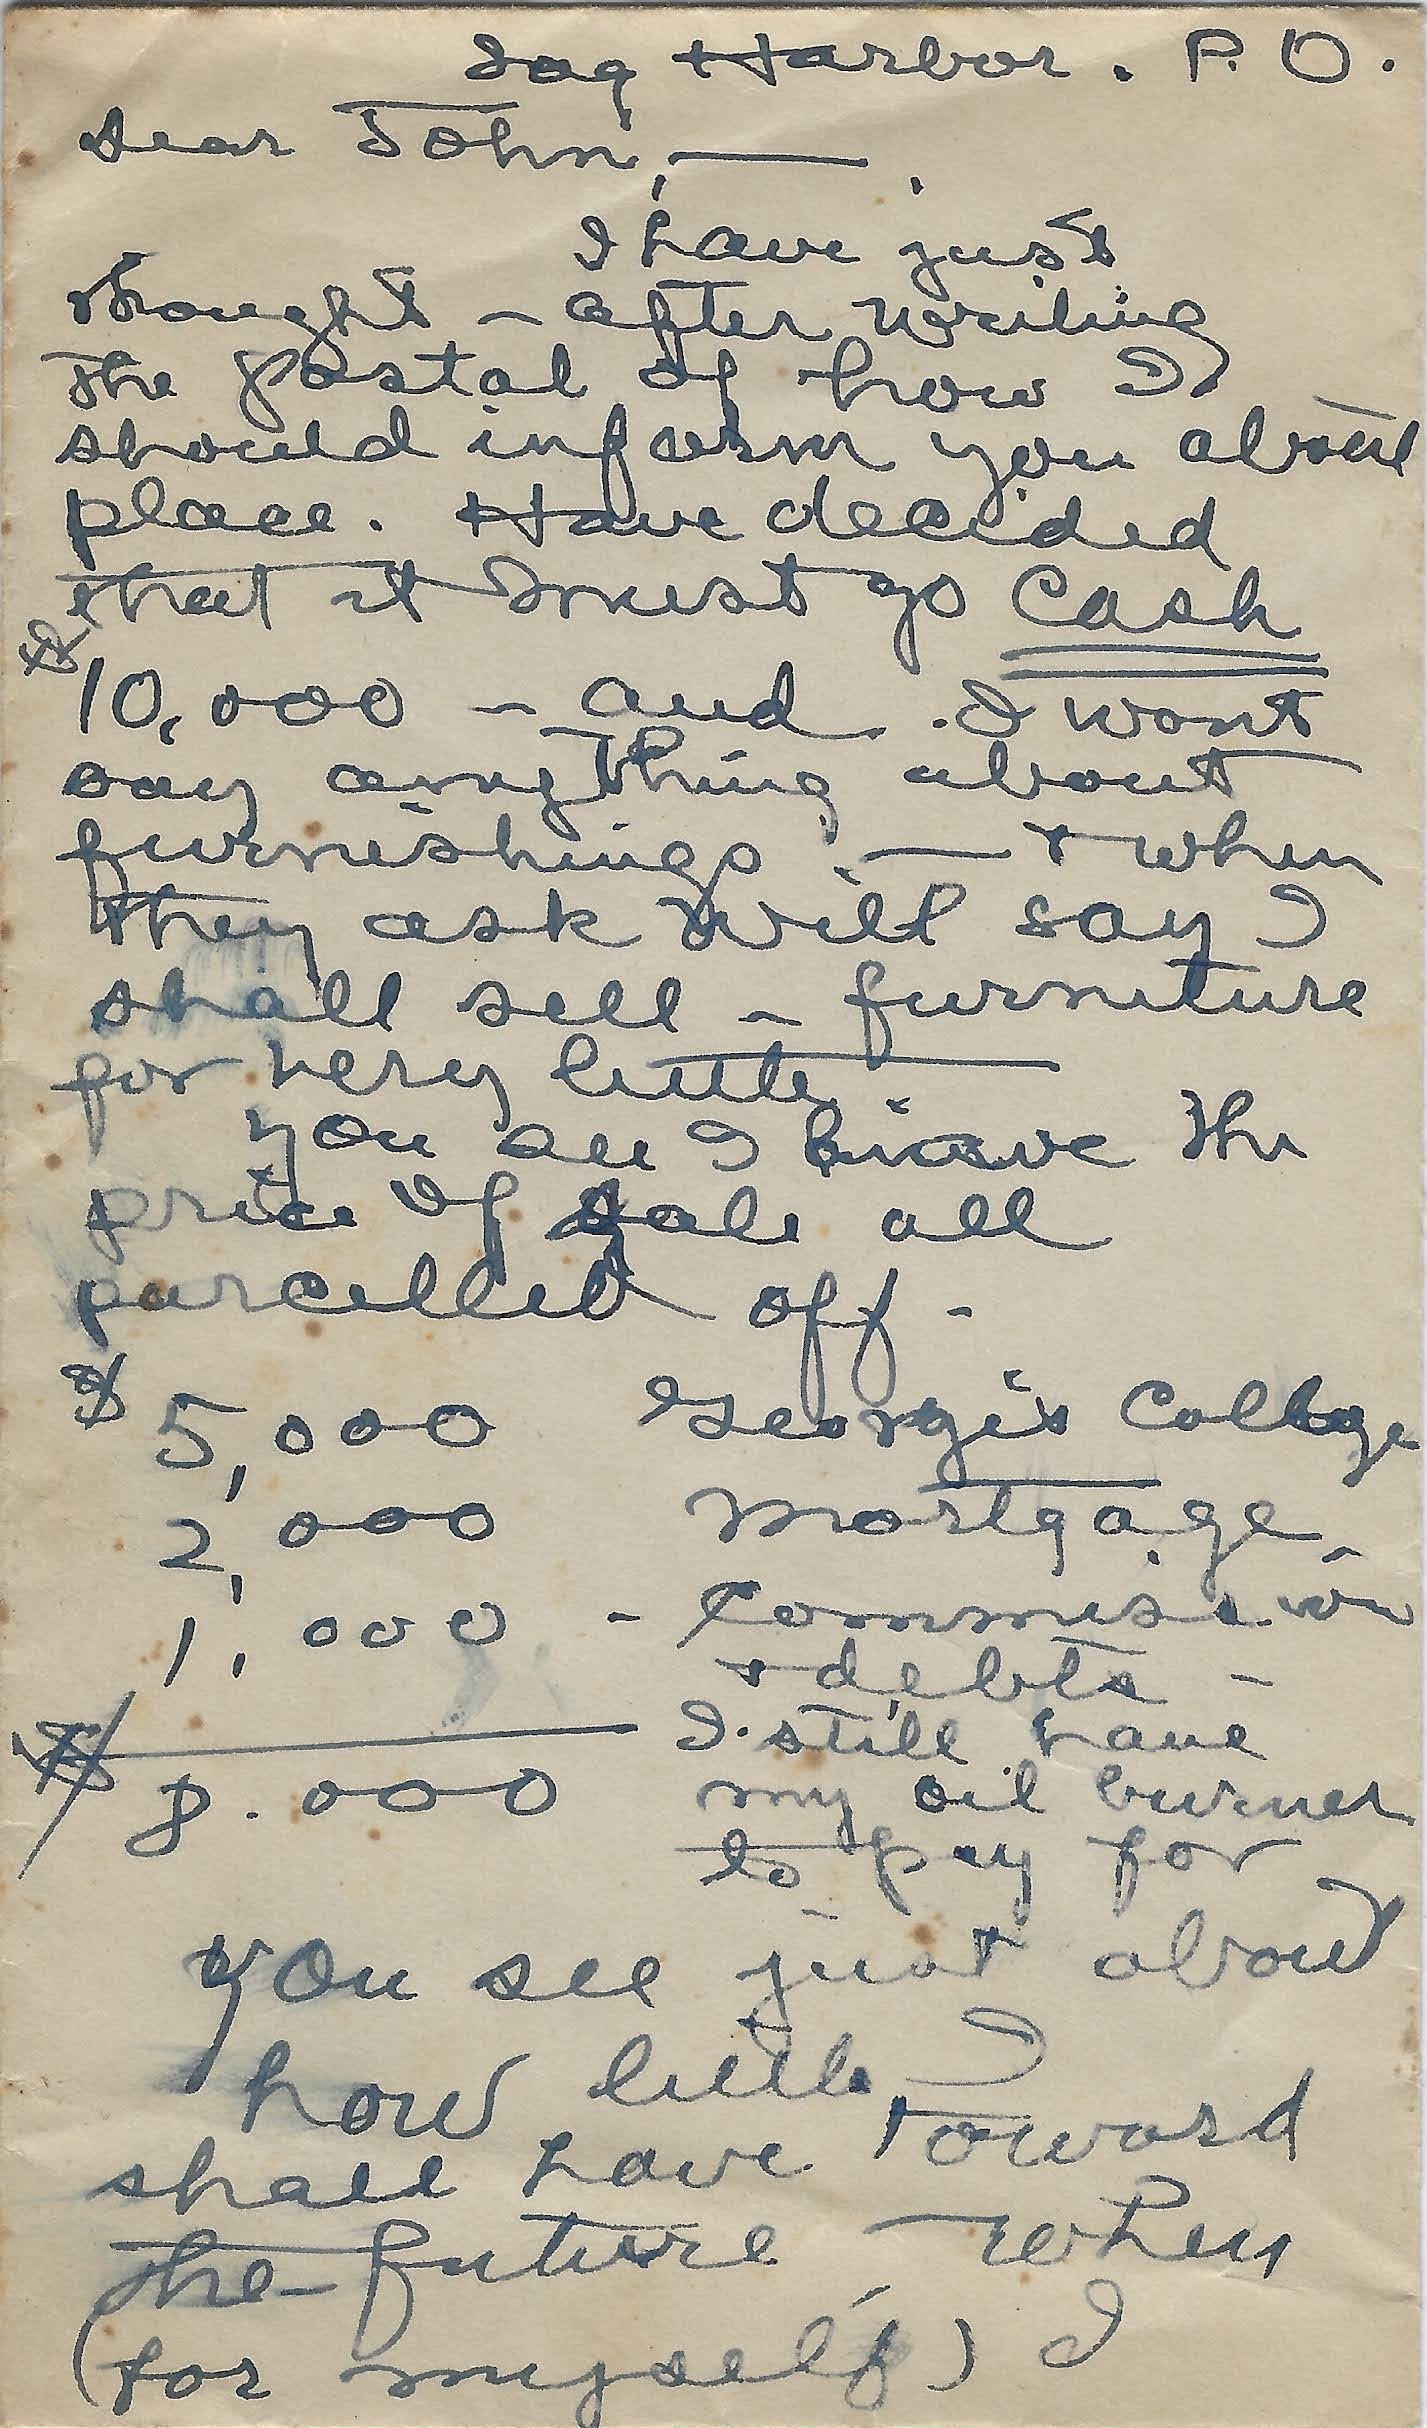 Sag Harbor. P.O.
Dear John, —
I have just
thought - after writing
the postal of how I
should inform you about
place. Have decided
that it must go Cash
$10,000 - and I wont
say anything about
furnishings. — & when
they ask will say I
shall sell - furniture
for very little.
you see I have the
price of sale all
parcelled off -
$ 5,000 George's College
2,000 Mortgage
1,000 - Commission
& debts -
$ 8.000 I still have
my oil burner
to pay for
you see just about
how little I
shall have toward
the future when
(for myself) I